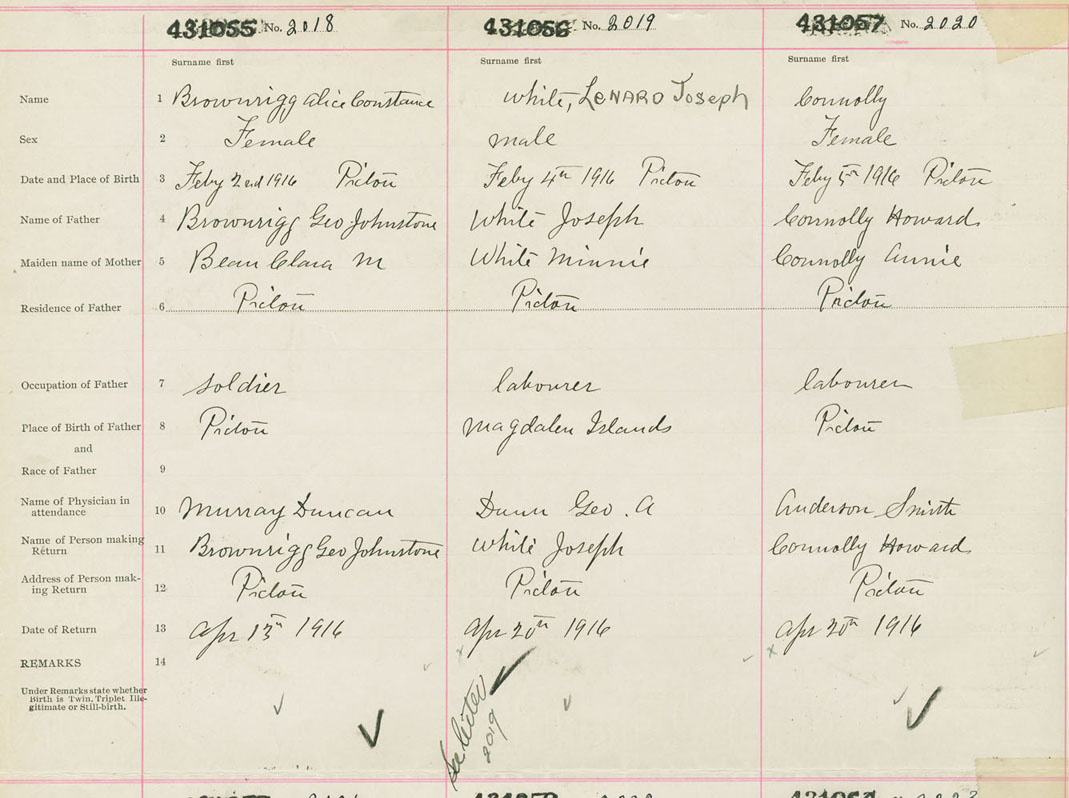 431055 No. 2018 431056 No. 2019 431057 No. 2020
Surname first Surname first Surname first
Name 1 Brownrigg Alice Constance White, LENARD Joseph Connolly
Sex 2 Female male Female
Date and Place of Birth 3 Feby 2nd 1916 Picton Feby 4th 1916 Picton Feby 5th 1916 Picton
Name of Father 4 Brownrigg Geo Johnstone White Joseph Connolly Howard
Maiden name of Mother 5 Bean Clara M White Minnie Connolly Annie
Residence of Father 6 Picton Picton Picton
Occupation of Father 7 soldier labourer labourer
Place of Birth of Father 8 Picton Magdalen Islands Picton
and
Race of Father 9
Name of Physician in
attendance 10 Murray Duncan Dunn Geo. A Anderson Smith
Name of Person making
Return 11 Brownrigg Geo Johnstone White Joseph Connolly Howard
Address of Person mak-
ing Return 12 Picton Picton Picton
Date of Return 13 Apr 13th 1916 Apr 20th 1916 Apr 20th 1916
REMARKS 14
Under Remarks state whether
Birth is Twin, Triplet Ille-
gitimate or Still-birth.
See letter
2019